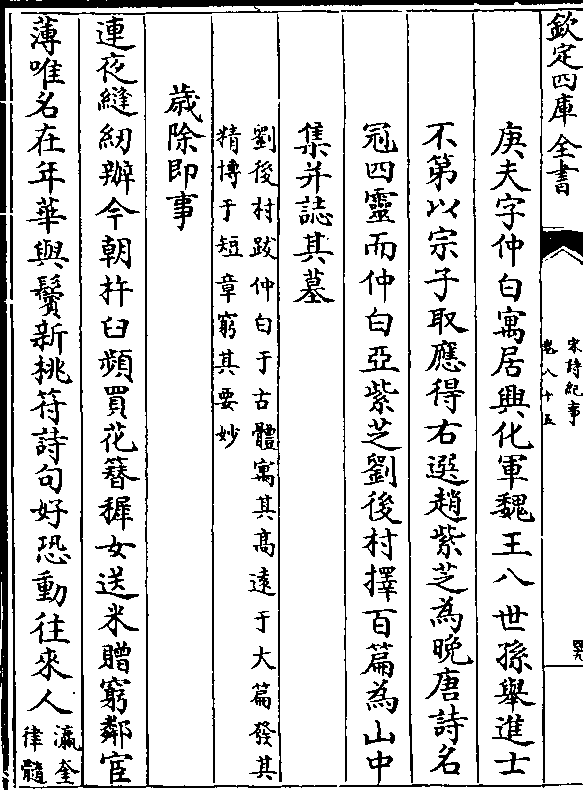 欽定四庫全書
宋詩紀事
卷八十五
庚夫字仲白寓居興化軍魏王八世孫舉進士
不第以宗子取應得右選趙紫芝為晚唐詩名
冠四靈而仲白亞紫芝劉後村擇百篇為山中
集并誌其墓
劉後村跋仲白于古體寓其高遠于大篇發其
精博于短章窮其要妙
歲除即事
連夜縫紉辦今朝杵臼頻買花簪穉女送米贈窮鄰宦
薄唯名在年華與鬢新挑符詩句好恐動往來人
瀛奎
律髓